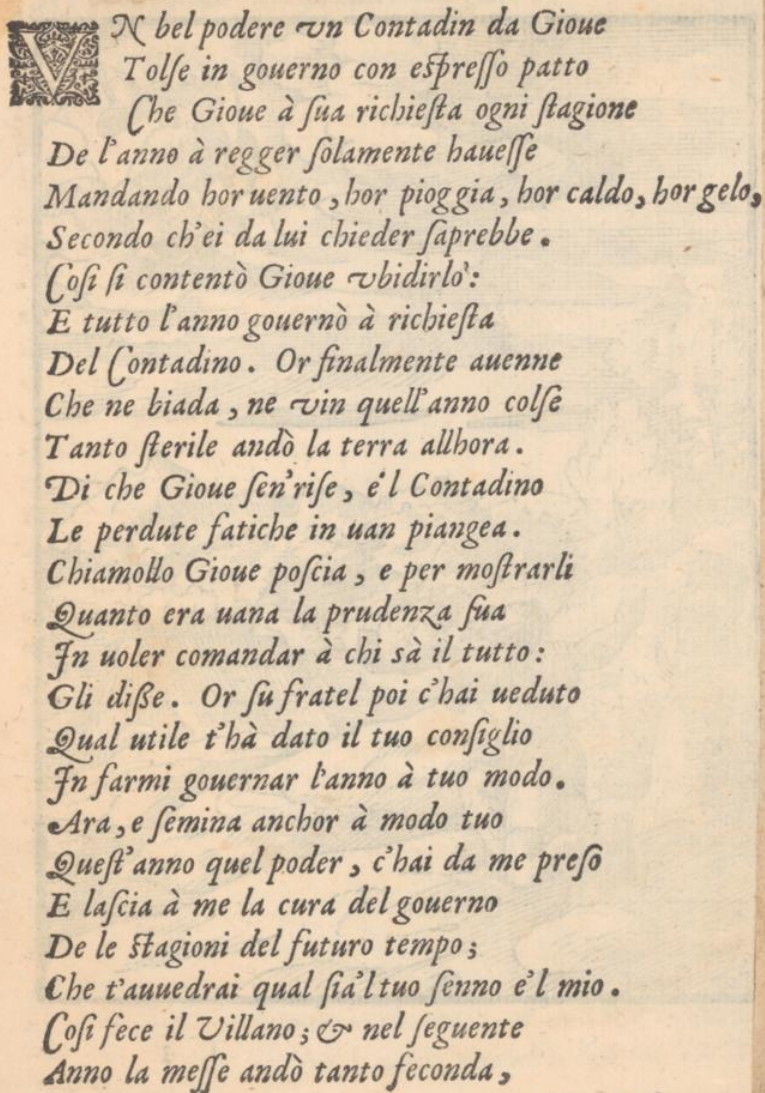 VN bel podere vn Contadin da Gioue
Tolſe in gouerno con eſpreſſo patto
Che Gioue à ſua richieſta ogni ſtagione
De l'anno à regger ſolamente haueſſe
Mandando hor uento, hor pioggia, hor caldo, hor gelo,
Secondo ch'ei da lui chieder ſaprebbe.
Coſi ſi contentò Gioue vbidirlo:
E tutto l'anno gouernò à richieſta
Del Contadino. Or finalmente auenne
Che ne biada, ne vin quell'anno colſe
Tanto ſterile andò la terra allhora.
Di che Gioue ſen'riſe, e'l Contadino
Le perdute fatiche in uan piangea.
Chiamollo Gioue poſcia, e per moſtrarli
Quanto era uana la prudenza ſua
In uoler comandar à chi sà il tutto:
Gli diße. Or ſu fratel poi c'hai ueduto
Qual utile t'hà dato il tuo conſiglio
In farmi gouernar l'anno à tuo modo.
Ara, e ſemina anchor à modo tuo
Queſt'anno quel poder, c'hai da me preſo
E laſcia à me la cura del gouerno
De le ſtagioni del futuro tempo;
Che t'auuedrai qual ſia'l tuo ſenno e'l mio.
Coſi fece il Villano; & nel ſeguente
Anno la meſſe andò tanto feconda,